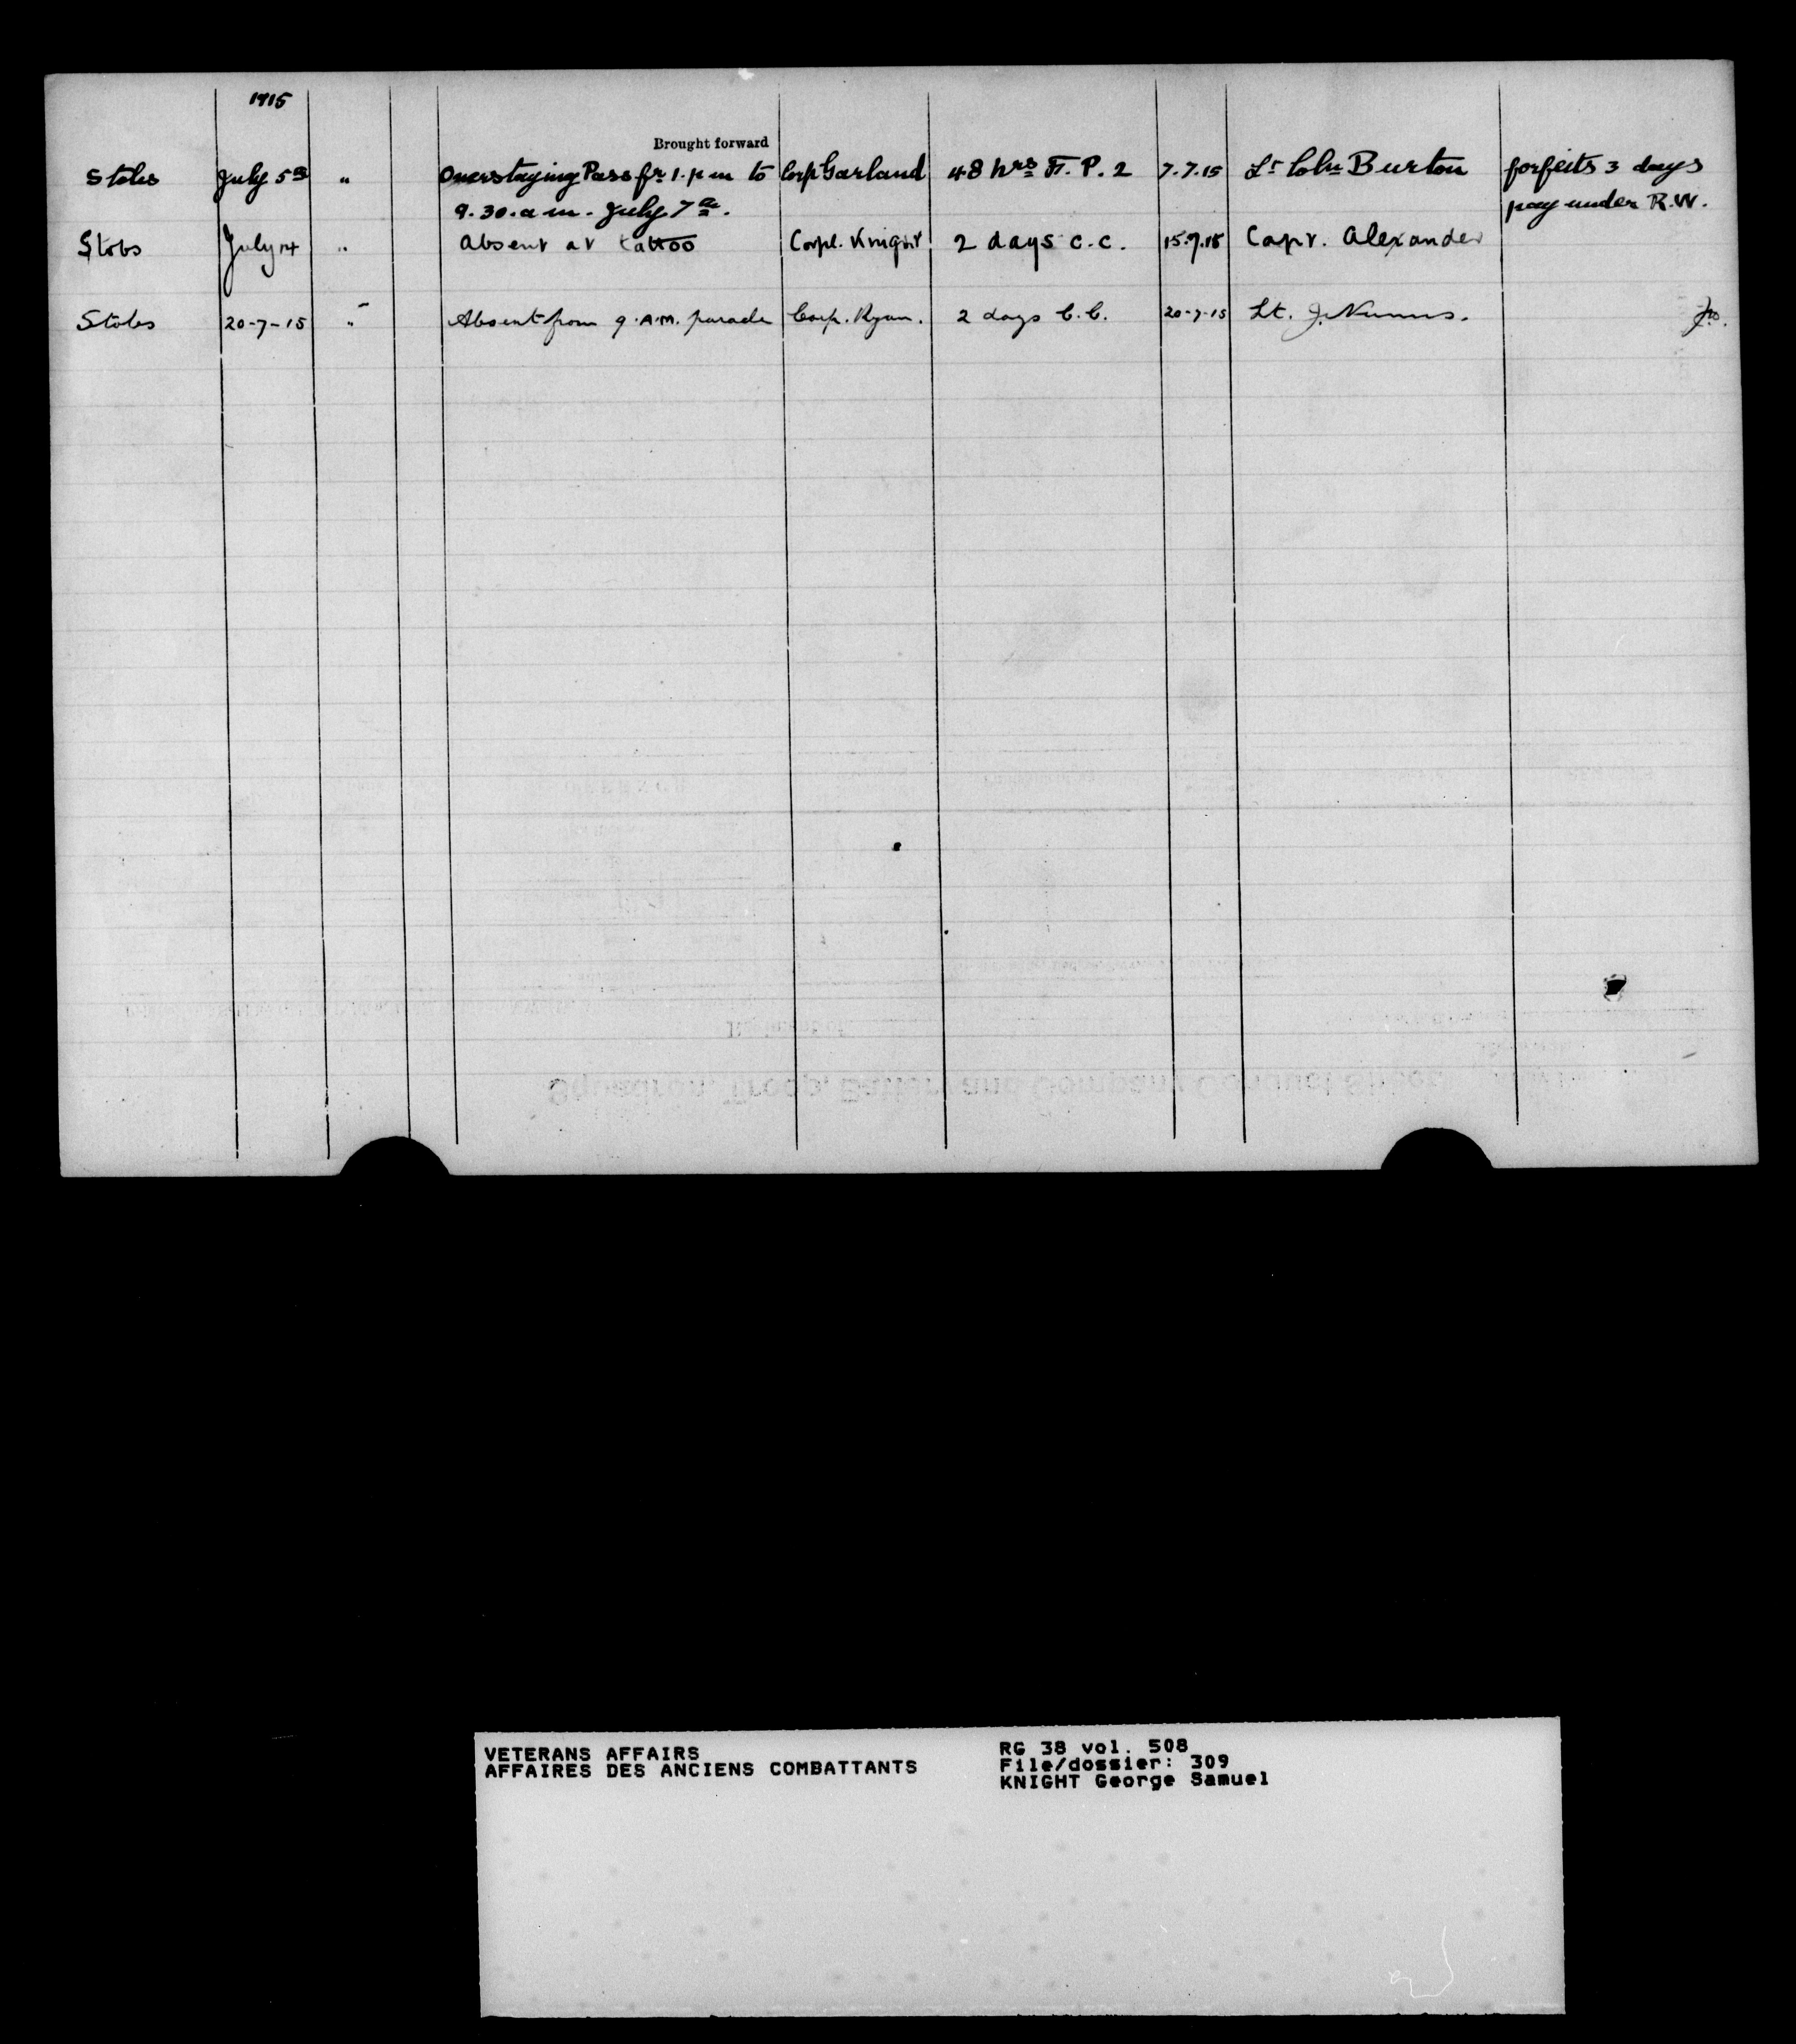 1915
Brought forward
Stobs July 5th " Overstaying Pass fr 1. p m to Corp Garland 48 hrs F. P. 2 7.7.15 Lt Coln Burton forfeits 3 days
9.30. a m. July 7th. pay under R.W.
Stobs July 14 " Absent at tattoo Corpl. Knight 2 days C.C. 15.7.15 Capt. Alexander
Stobs 20-7-15 " Absent from 9. A.M. parade Corp. Ryan. 2 days C.C. 20-7-15 Lt. J. Nunns.
Squadron, Troop, Battery and Company Conduct Sheet
VETERANS AFFAIRS RG 38 vol. 508
AFFAIRES DES ANCIENS COMBATTANTS File/dossier: 309
KNIGHT George Samuel